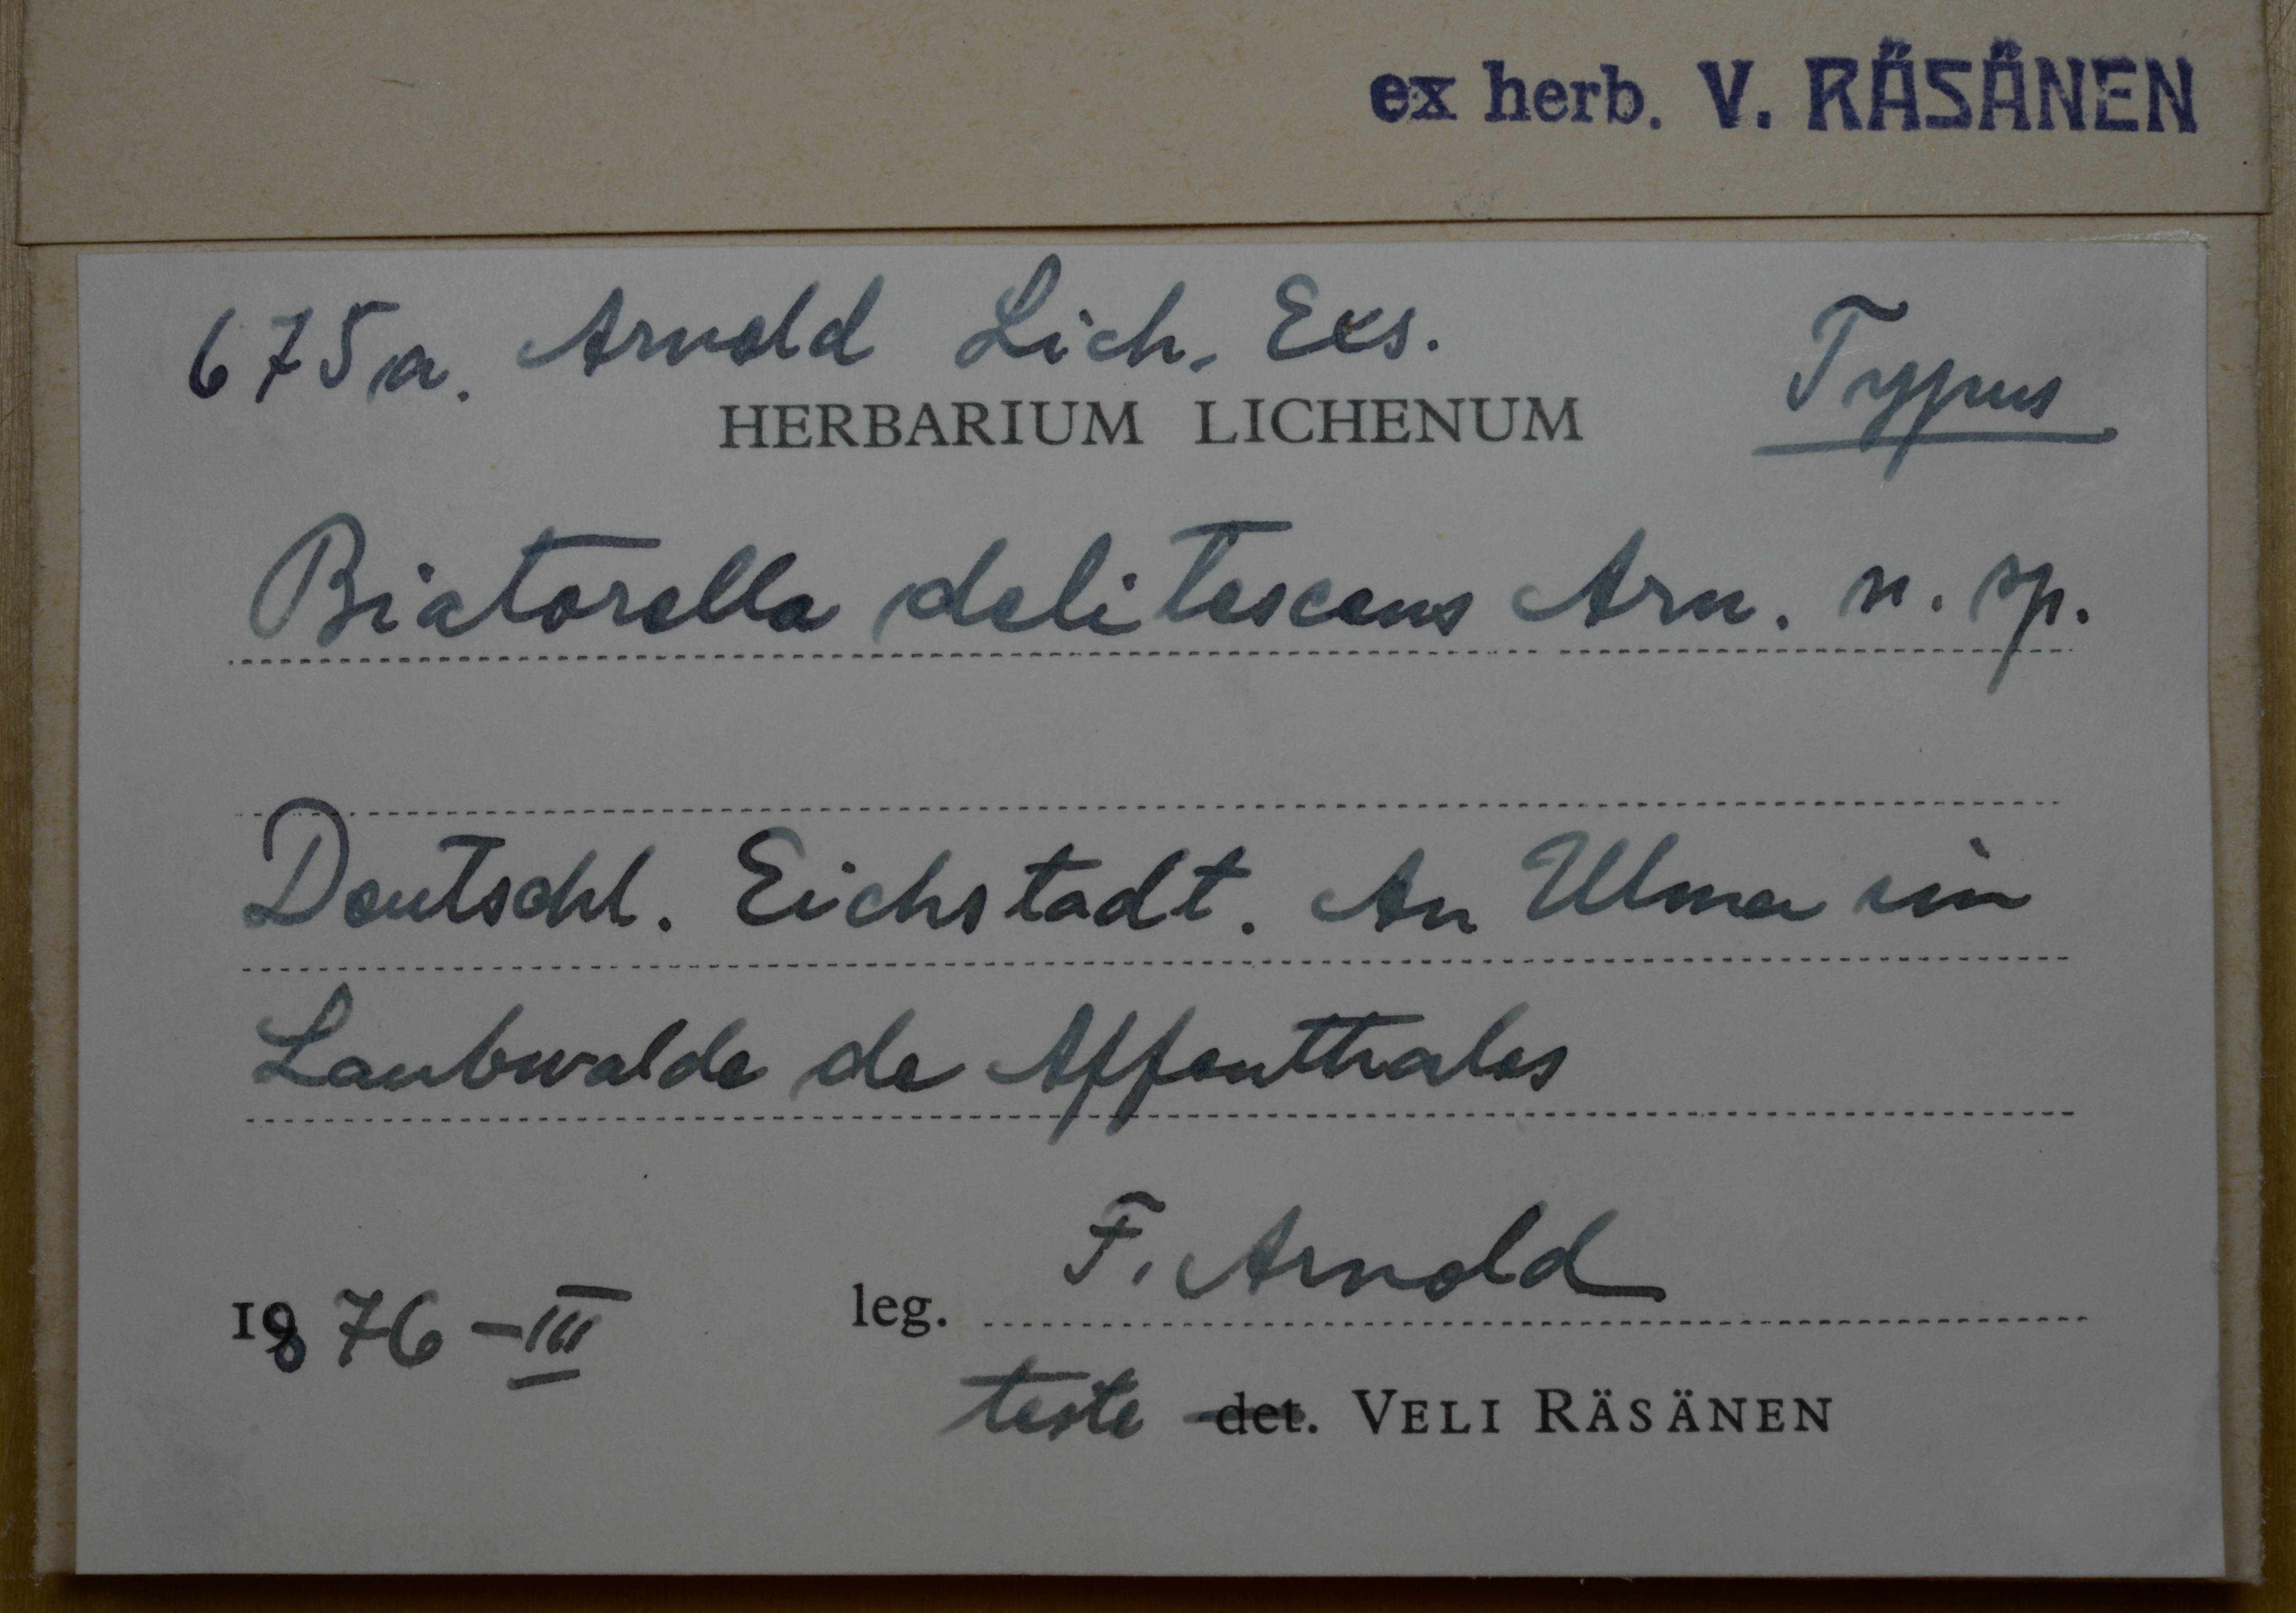 ex herb. V. RÄSÄNEN
675a. Arnold Lich. Exs.
Typus
HERBARIUM LICHENUM
Biatorella delitescens Arn. n. sp.
Deutschl. Eichstadt. An Ulma im
Laubwalde de Affenthales
1876-III
leg. F. Arnold
teste det. VELI RÄSÄNEN